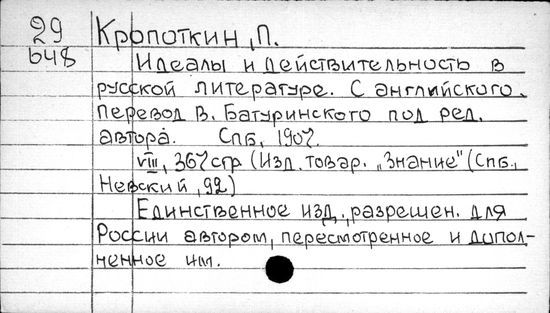 29 Кропоткин, П.
648 Идеалы и действительность в
русской литературе. С английского.
перевод В. Батуринского под ред.
автора. Спб, 1907.
VIII, 367 стр (Изд. товар. „Знание" (Спб.,
Невский, 92)
Единственное изд., разрешен. для
России автором, пересмотренное и дополненное им.